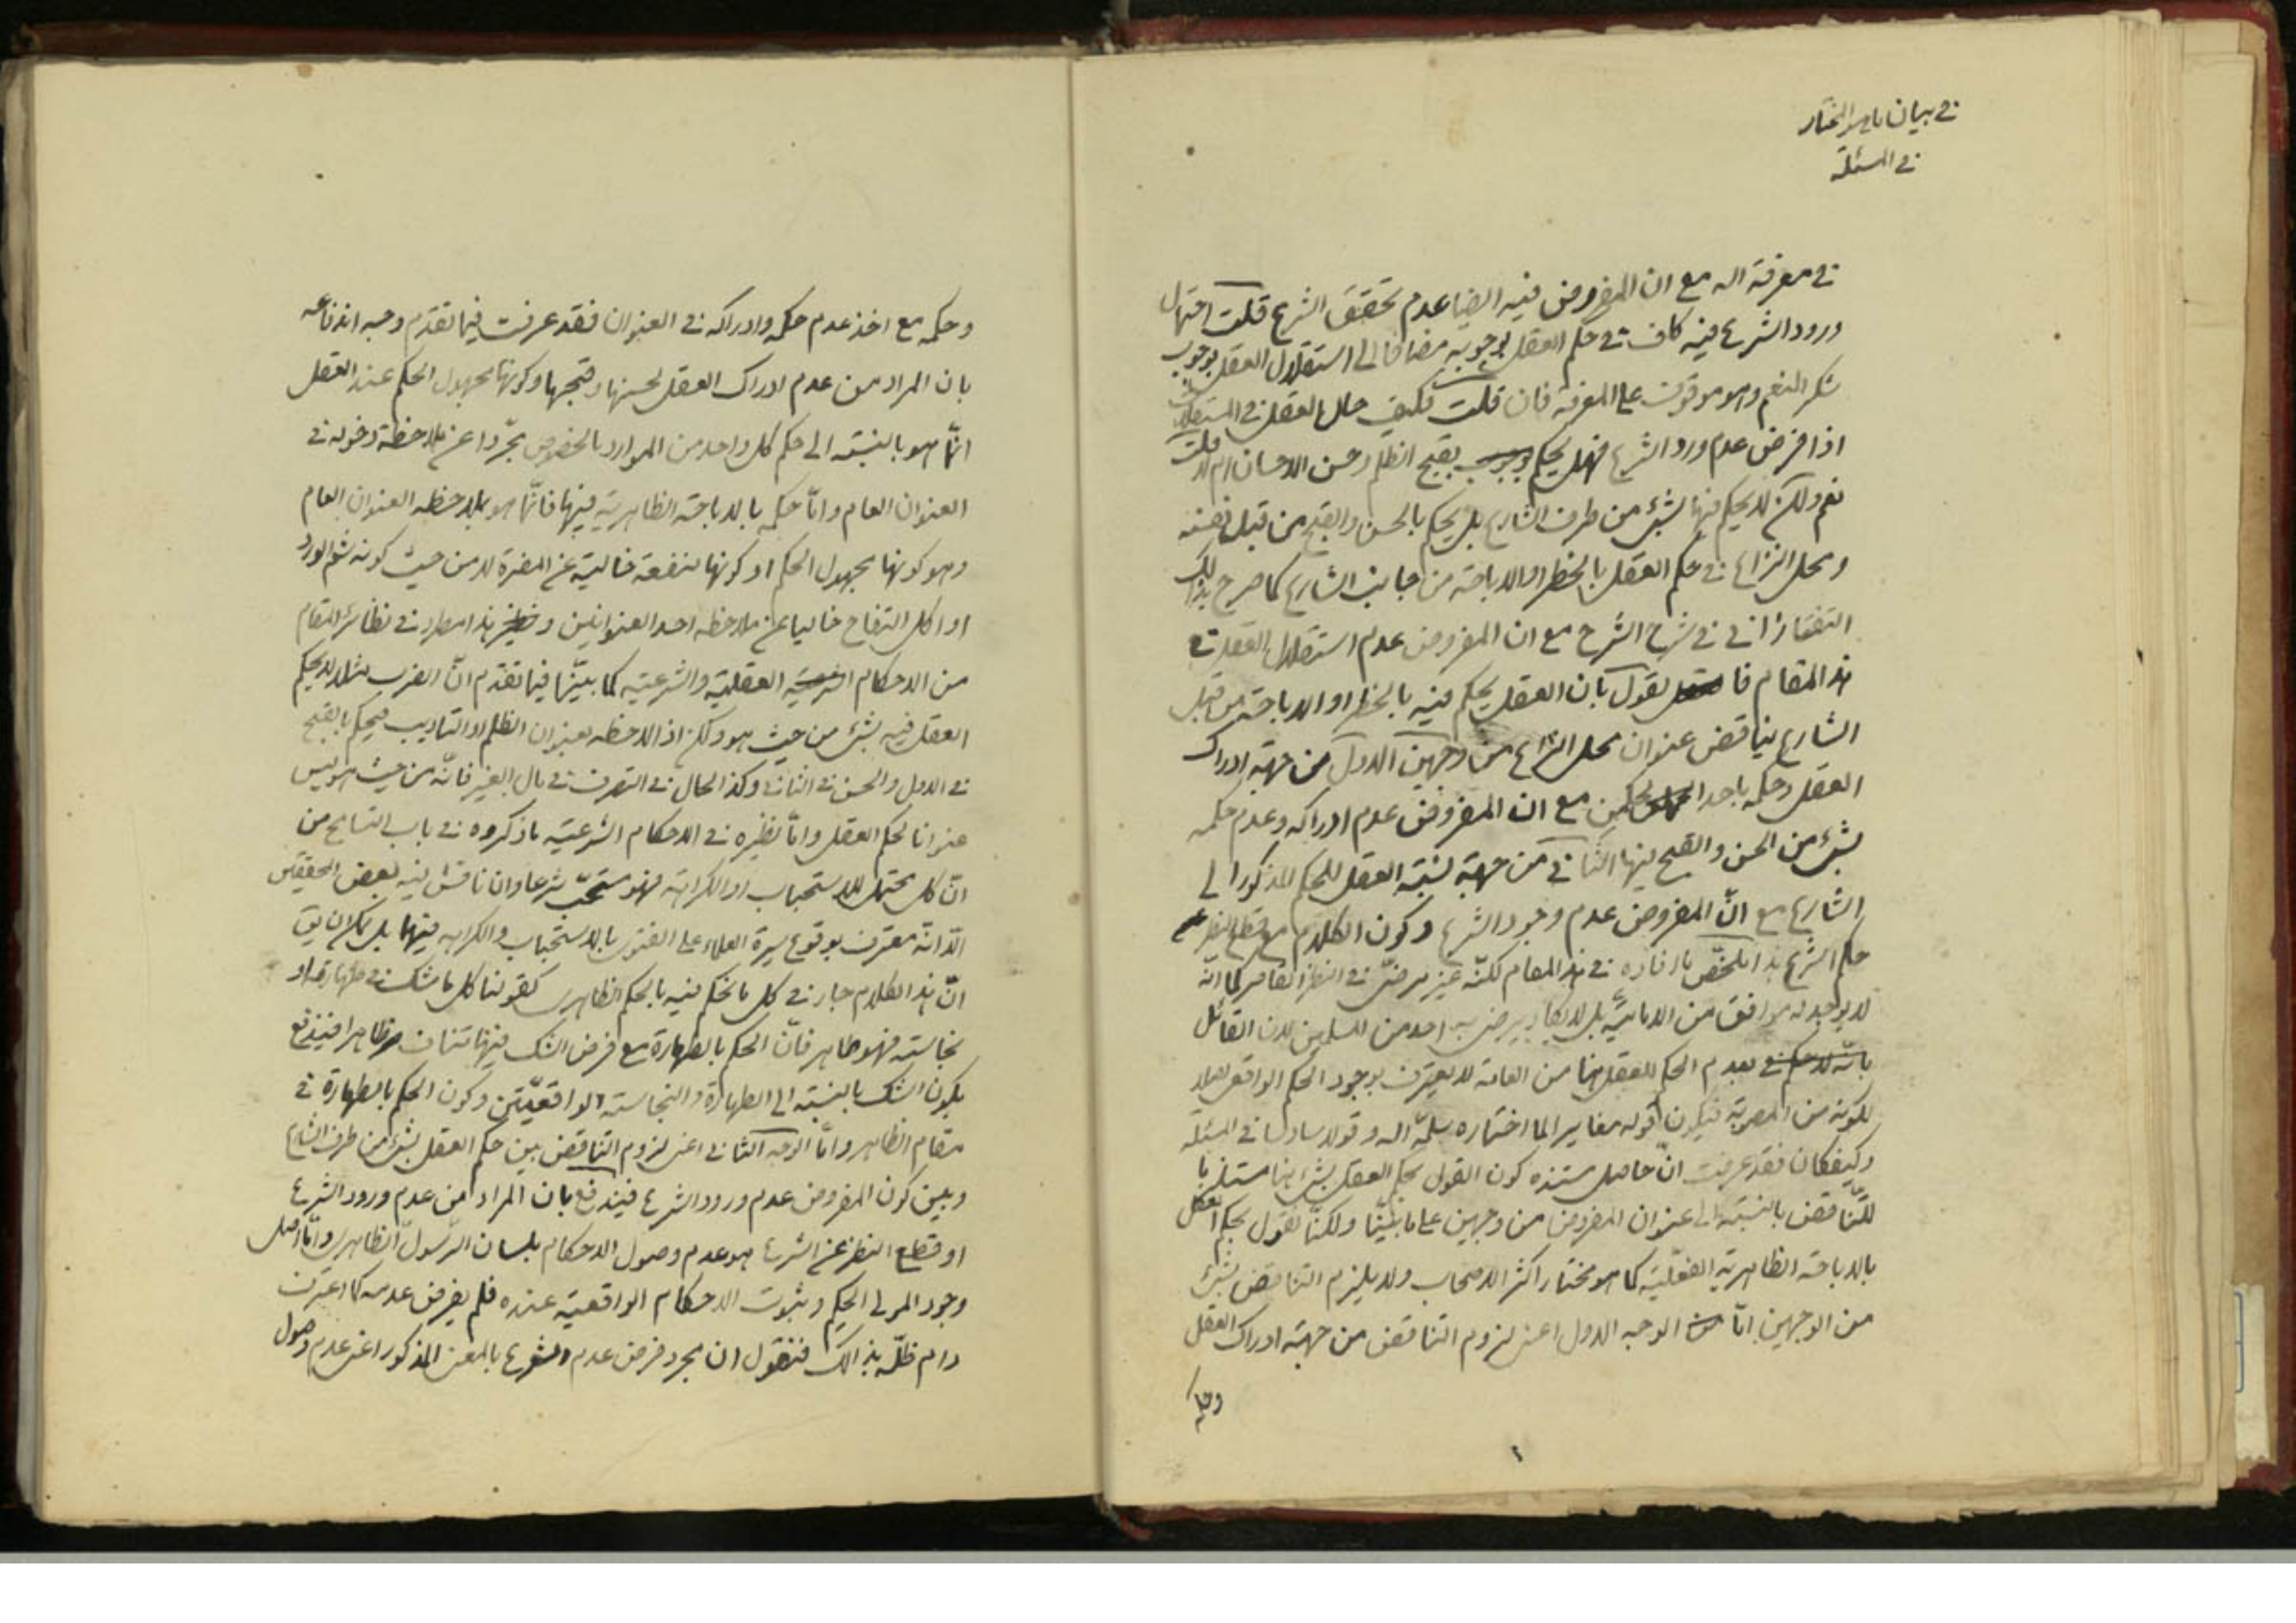 في بيان ما هو المختار
في المسئلة
في معرفة اله مع ان المفروض فيه ايضا عدم تحقق الشرع قلت احتمال
ورود الشرع فيه كاف في حكم العقل بوجوبه مضافا الى استقلال العقل بوجوب
شكر المنعم وهو موقوف على المعرفة فان قلت فكيف حال العقل في المستقلات
اذا فرض عدم ورود الشرع فهل يحكم بقبح الظلم وحسن الاحسان ام لا قلت
نعم ولكن لا يحكم فيها بشئ من طرف الشارع بل يحكم بالحسن والقبح من قبل نفسه
ومحل النزاع في حكم العقل بالحظر او الاباحة من جانب الشارع كما صرح بذلك
التفتازاني في شرح الشرح مع ان المفروض عدم استقلال العقل في
هذا المقام فا لقول بان العقل يحكم فيه بالحظر او الاباحة من قبل
الشارع يناقض عنوان محل النزاع من وجهين الاول من جهة ادراك
العقل وحكمه باحد الحكمين مع ان المفروض عدم ادراكه وعدم حكمه
بشئ من الحسن والقبح فيها الثاني من جهة نسبة العقل للحكم المذكور الى
الشارع مع ان المفروض عدم وجود الشرع وكون الكلام مع قطع النظر عن
حكم الشرع هذا ملخص ما افاده في هذا المقام لكنه غير مرضي في النظر القاصر كما انه
لا يوجد له موافق من الامامية بل لا يكاد يرضى به احد من المسلمين لان القائل
بعدم الحكم للعقل هنا من العامة لا يعترف بوجود الحكم الواقعي
لكونه من المصوبة فيكون قوله مغايرا لما اختاره سلمه اله وقولا سادسا في المسئلة
وكيفكان فقد عرفت ان حاصل مستنده كون القول بحكم العقل بشئ هنا مستلزما
للتناقض بالنسبة الى عنوان المفروض من وجهين على ما بيّنا ولكنا نقول بحكم العقل
بالاباحة الظاهرية الفعلية كما هو مختار اكثر الاصحاب ولا يلزم التناقض بشئ
من الوجهين امّا الوجه الاول اعني لزوم التناقض من جهة ادراك العقل
وحكمه
وحكمه مع اخذ عدم حكمه وادراكه في العنوان فقد عرفت فيما تقدم وجه اندفاعه
بان المراد من عدم ادراك العقل لحسنها وقبحها وكونها مجهول الحكم عند العقل
انّما هو بالنسبة الى حكم كل واحد من الموارد بالخصوص مجرّدا عن ملاحظة دخوله في
العنوان العام وامّا حكمه بالاباحة الظاهرية فيها فانّما هو بملاحظة العنوان العام
وهو كونها مجهول الحكم او كونها منفعة خالية عن المضرة لا من حيث كونه شم الورد
او اكل التفاح خاليا عن ملاحظة احد العنوانين ونظير هذا مطرد في نظائر المقام
من الاحكام العقلية والشرعية كما بيّنّا فيما تقدم انّ الضرب مثلا لا يحكم
العقل فيه بشئ من حيث هو ولكن اذا لاحظه بعنوان الظلم او التاديب فيحكم بالقبح
في الاول والحسن في الثاني وكذا الحال في التصرف في مال الغير فانّه من حيث هو ليس
عنوانا لحكم العقل وامّا نظيره في الاحكام الشرعية ما ذكروه في باب التسامح من
انّ كل محتمل للاستحباب او الكراهة فهو مستحبّ شرعا وان ناقش فيه بعض المحققين
الّا انّه معترف بوقوع سيرة العلماء على الفتوى بالاستحباب والكراهة فيهما بل يمكن ان يق
انّ هذا الكلام جار في كل ما نحكم فيه بالحكم الظاهري كقولنا كل ما شك في طهارته او
نجاسته فهو طاهر فانّ الحكم بالطهارة مع فرض الشك فيها متناف ظاهرا فيندفع
بكون الشك بالنسبة الى الطهارة والنجاسة الواقعيّتين وكون الحكم بالطهارة في
مقام الظاهر وامّا الوجه الثاني اعني لزوم التناقض بين حكم العقل بشئ من طرف الشارع
وبين كون المفروض عدم ورود الشرع فيندفع بان المراد من عدم ورود الشرع
او قطع النظر عن الشرع هو عدم وصول الاحكام بلسان الرّسول الظاهري وامّا اصل
وجود المولى الحكيم وثبوت الاحكام الواقعية عنده فلم يفرض عدمه كما اعترف
دام ظلّه بذالك فنقول ان مجرد فرض عدم الشرع بالمعنى المذكور اعني عدم وصول